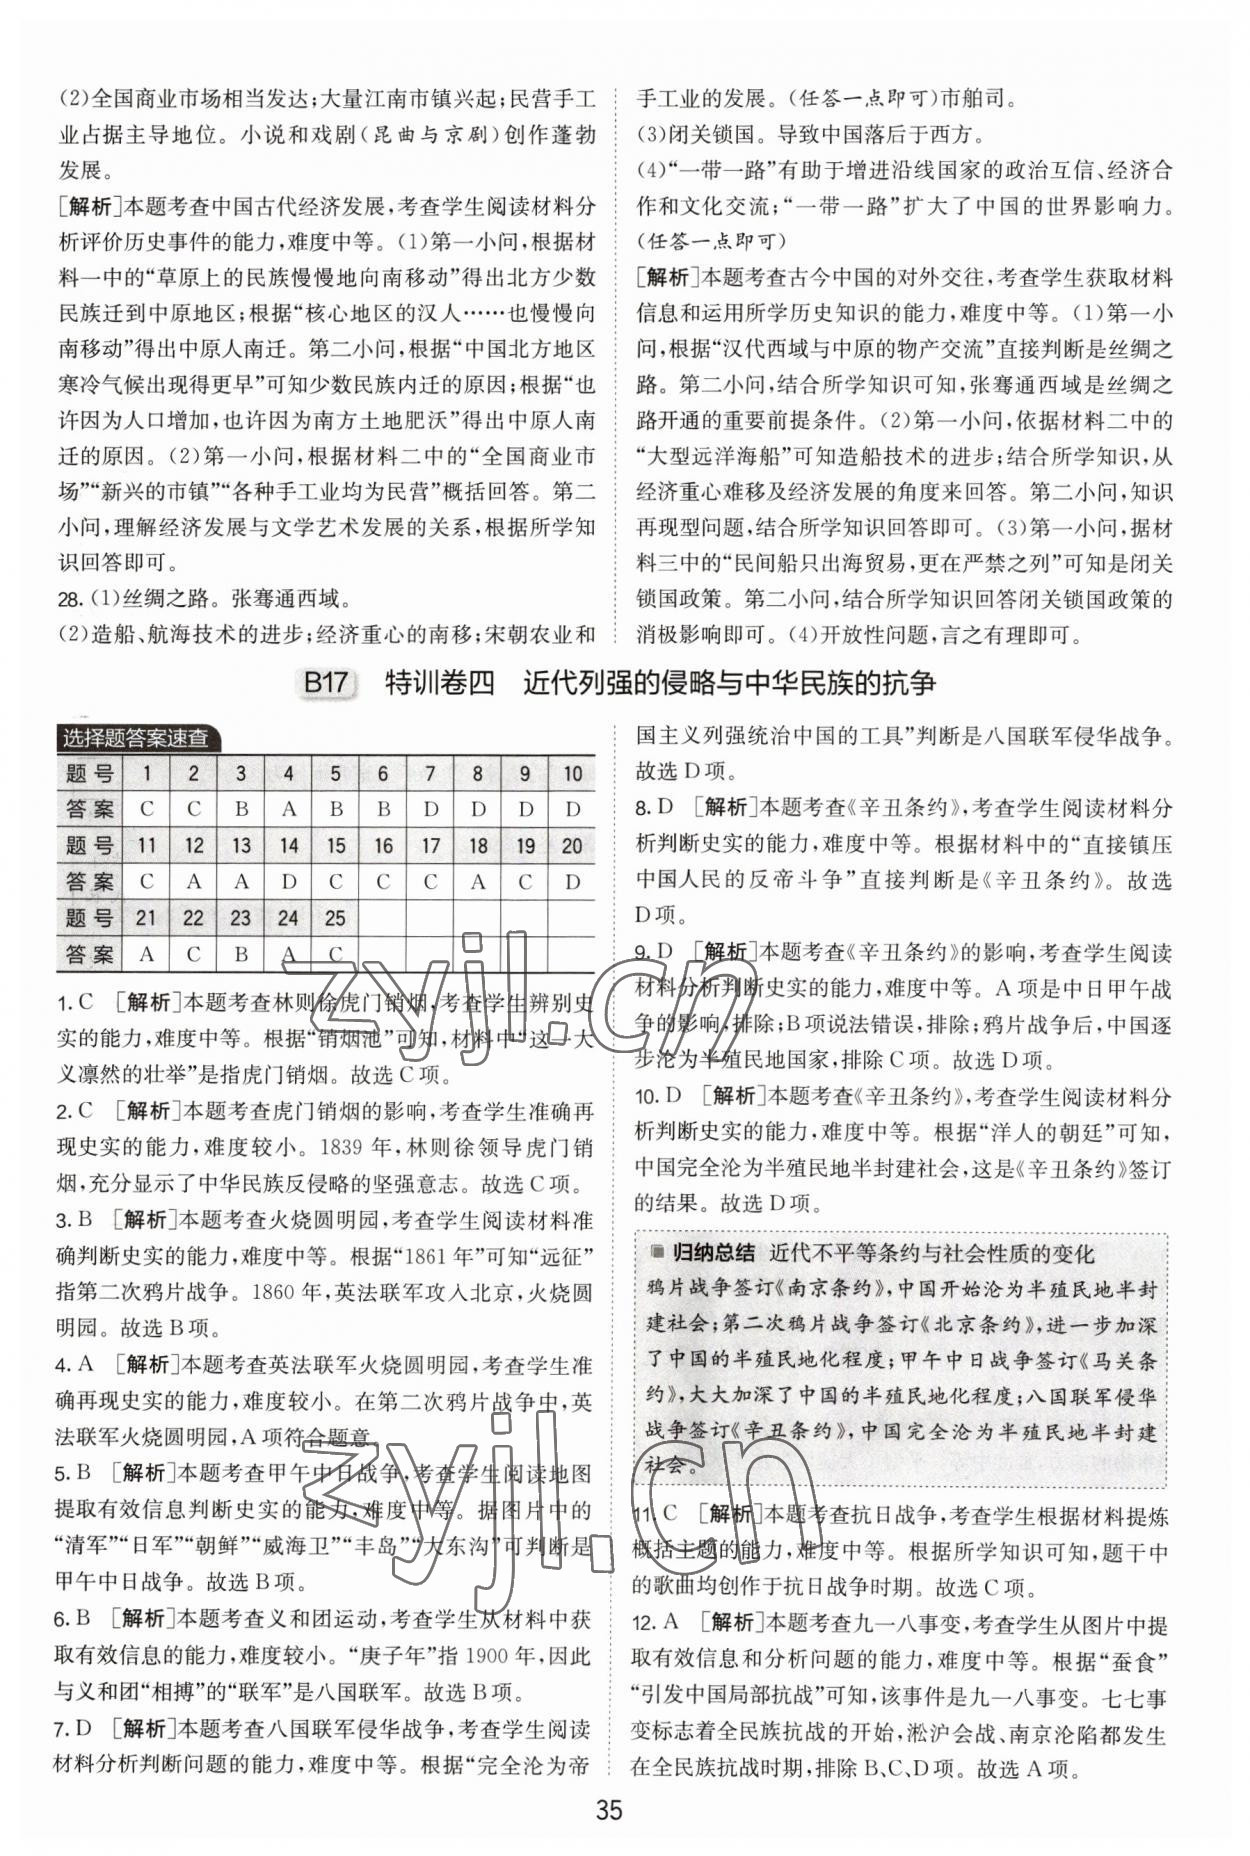 (2)全国商业市场相当发达;大量江南市镇兴起;民营手工
业占据主导地位。小说和戏剧(昆曲与京剧)创作蓬勃
发展。
[解析]本题考查中国古代经济发展,考查学生阅读材料分
析评价历史事件的能力,难度中等。(1)第一小问,根据材
料一中的“草原上的民族慢慢地向南移动”得出北方少数
民族迁到中原地区;根据“核心地区的汉人……也慢慢向
南移动”得出中原人南迁。第二小问,根据“中国北方地区
寒冷气候出现得更早”可知少数民族内迁的原因;根据“也
许因为人口增加,也许因为南方土地肥沃”得出中原人南
迁的原因。(2)第一小问,根据材料二中的“全国商业市
场”“新兴的市镇”“各种手工业均为民营”概括回答。第二
小问,理解经济发展与文学艺术发展的关系,根据所学知
识回答即可。
28.(1)丝绸之路。张骞通西域。
(2)造船、航海技术的进步;经济重心的南移;宋朝农业和
手工业的发展。(任答一点即可)市舶司。
(3)闭关锁国。导致中国落后于西方。
(4)“一带一路”有助于增进沿线国家的政治互信、经济合
作和文化交流;“一带一路”扩大了中国的世界影响力。
(任答一点即可)
[解析]本题考查古今中国的对外交往,考查学生获取材料
信息和运用所学历史知识的能力,难度中等。(1)第一小
问,根据“汉代西域与中原的物产交流”直接判断是丝绸之
路。第二小问,结合所学知识可知,张骞通西域是丝绸之
路开通的重要前提条件。(2)第一小问,依据材料二中的
“大型远洋海船”可知造船技术的进步;结合所学知识,从
经济重心难移及经济发展的角度来回答。第二小问,知识
再现型问题,结合所学知识回答即可。(3)第一小问,据材
料三中的“民间船只出海贸易,更在严禁之列”可知是闭关
锁国政策。第二小问,结合所学知识回答闭关锁国政策的
消极影响即可。(4)开放性问题,言之有理即可。
B17 特训卷四 近代列强的侵略与中华民族的抗争
选择题答案速查
题号 1 2 3 4 5 6 7 8 9 10
答案 C C B A B B D D D D
题号 11 12 13 14 15 16 17 18 19 20
答案 C A A D C C C A C D
题号 21 22 23 24 25
答案 A C B A C
1. C [解析]本题考查林则徐虎门销烟,考查学生辨别史
实的能力,难度中等。根据“销烟池”可知,材料中“这一大
义凛然的壮举”是指虎门销烟。故选C项。
2. C [解析]本题考查虎门销烟的影响,考查学生准确再
现史实的能力,难度较小。1839年,林则徐领导虎门销
烟,充分显示了中华民族反侵略的坚强意志。故选C项。
3. B [解析]本题考查火烧圆明园,考查学生阅读材料准
确判断史实的能力,难度中等。根据“1861年”可知“远征”
指第二次鸦片战争。1860年,英法联军攻入北京,火烧圆
明园。故选B项。
4. A [解析]本题考查英法联军火烧圆明园,考查学生准
确再现史实的能力,难度较小。在第二次鸦片战争中,英
法联军火烧圆明园,A项符合题意。
5. B [解析]本题考查甲午中日战争,考查学生阅读地图
提取有效信息判断史实的能力,难度中等。据图片中的
“清军”“日军”“朝鲜”“威海卫”“丰岛”“大东沟”可判断是
甲午中日战争。故选B项。
6. B [解析]本题考查义和团运动,考查学生从材料中获
取有效信息的能力,难度较小。“庚子年”指1900年,因此
与义和团“相搏”的“联军”是八国联军。故选B项。
7. D [解析]本题考查八国联军侵华战争,考查学生阅读
材料分析判断问题的能力,难度中等。根据“完全沦为帝
国主义列强统治中国的工具”判断是八国联军侵华战争。
故选D项。
8. D [解析]本题考查《辛丑条约》,考查学生阅读材料分
析判断史实的能力,难度中等。根据材料中的“直接镇压
中国人民的反帝斗争”直接判断是《辛丑条约》。故选
D项。
9. D [解析]本题考查《辛丑条约》的影响,考查学生阅读
材料分析判断史实的能力,难度中等。A项是中日甲午战
争的影响,排除;B项说法错误,排除;鸦片战争后,中国逐
步沦为半殖民地国家,排除C项。故选D项。
10. D [解析]本题考查《辛丑条约》,考查学生阅读材料分
析判断史实的能力,难度中等。根据“洋人的朝廷”可知,
中国完全沦为半殖民地半封建社会,这是《辛丑条约》签订
的结果。故选D项。
归纳总结 近代不平等条约与社会性质的变化
鸦片战争签订《南京条约》,中国开始沦为半殖民地半封
建社会;第二次鸦片战争签订《北京条约》,进一步加深
了中国的半殖民地化程度;甲午中日战争签订《马关条
约》,大大加深了中国的半殖民地化程度;八国联军侵华
战争签订《辛丑条约》,中国完全沦为半殖民地半封建
社会。
11. C [解析]本题考查抗日战争,考查学生根据材料提炼
概括主题的能力,难度中等。根据所学知识可知,题干中
的歌曲均创作于抗日战争时期。故选C项。
12. A [解析]本题考查九一八事变,考查学生从图片中提
取有效信息和分析问题的能力,难度中等。根据“蚕食”
“引发中国局部抗战”可知,该事件是九一八事变。七七事
变标志着全民族抗战的开始,淞沪会战、南京沦陷都发生
在全民族抗战时期,排除B、C、D项。故选A项。
35
zyjl.cn
zyjl.cn